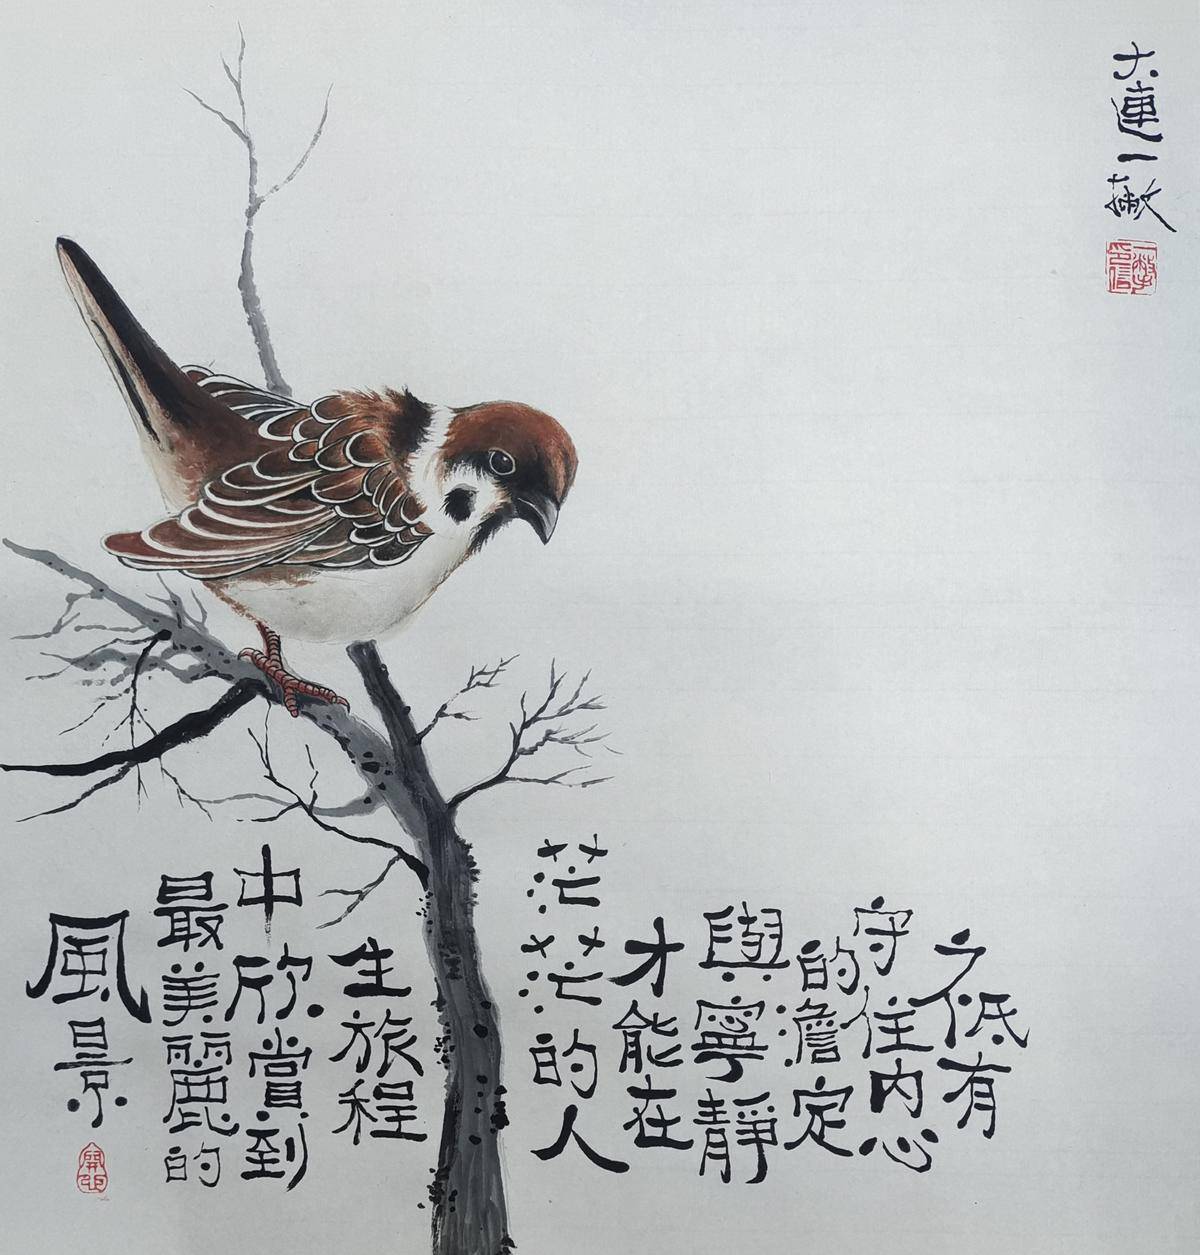 大連一撇
一撆印信
之低有
守住内心
的澹定
與寧靜
才能在
茫茫的人
生旅程
中欣賞到
最美麗的
風景